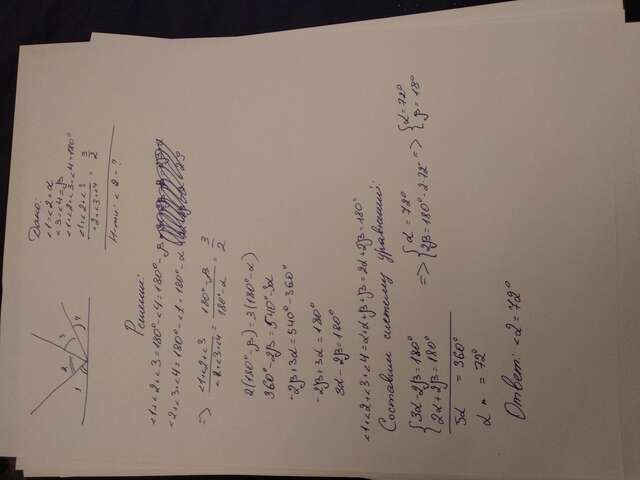 Дано:
<1=<2=α
<3=<4=β
<1+<2+<3+<4=180°
<1+<2+<3 / <2+<3+<4 = 3/2
Найти: <2-?
1 2 3 4
Решение:
<1+<2+<3=180°-<4=180°-β
<2+<3+<4=180°-<1=180°-α
=> <1+<2+<3 / <2+<3+<4 = 180°-β / 180°-α = 3/2
2(180°-β)=3(180°-α)
360°-2β=540°-3α
-2β+3α=540°-360°
-2β+3α=180°
3α-2β=180°
<1+<2+<3+<4=α+α+β+β=2α+2β=180°
Составим систему уравнений:
{3α-2β=180° {2α+2β=180°
5α =360°
α = 72°
=> {α=72° {2β=180°-2·72 => {α=72° {β=18°
Ответ: <2=72°